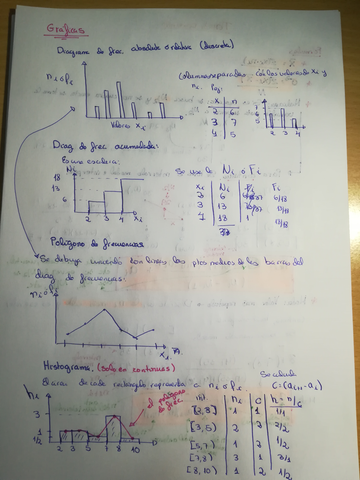 Gráficas
Diagrama de frec. absoluta o relativa (discreta)
ni o fi
Valores xi
Columnas separadas con los valores de xi y
ni
x n
2 6
3 7
4 5
2 3 4
Diag de frec acumulada:
Es una escalera:
Ni
18
13
6
2 3 4 xi
Se usa la Ni o Fi
xi Ni Fi
2 6 6/18
3 13 13/18
4 18
Polígono de frecuencias
Se dibuja uniendo con líneas los ptos medios de las barras del
diag de frecuencias:
ni o fi
xi
Histograma. (Solo en continuas)
El área de cada rectángulo representa a ni o fi.
Se calcula
ni
3
1
1/2
2 3 5 7 8 10
polígono
de frec.
ni c h = ni/c
[2,3] 1 1 1/1
[3,5] 2 2 2/2
[5,7] 1 2 1/2
[7,8] 3 1 3/1
[8,10] 1/2